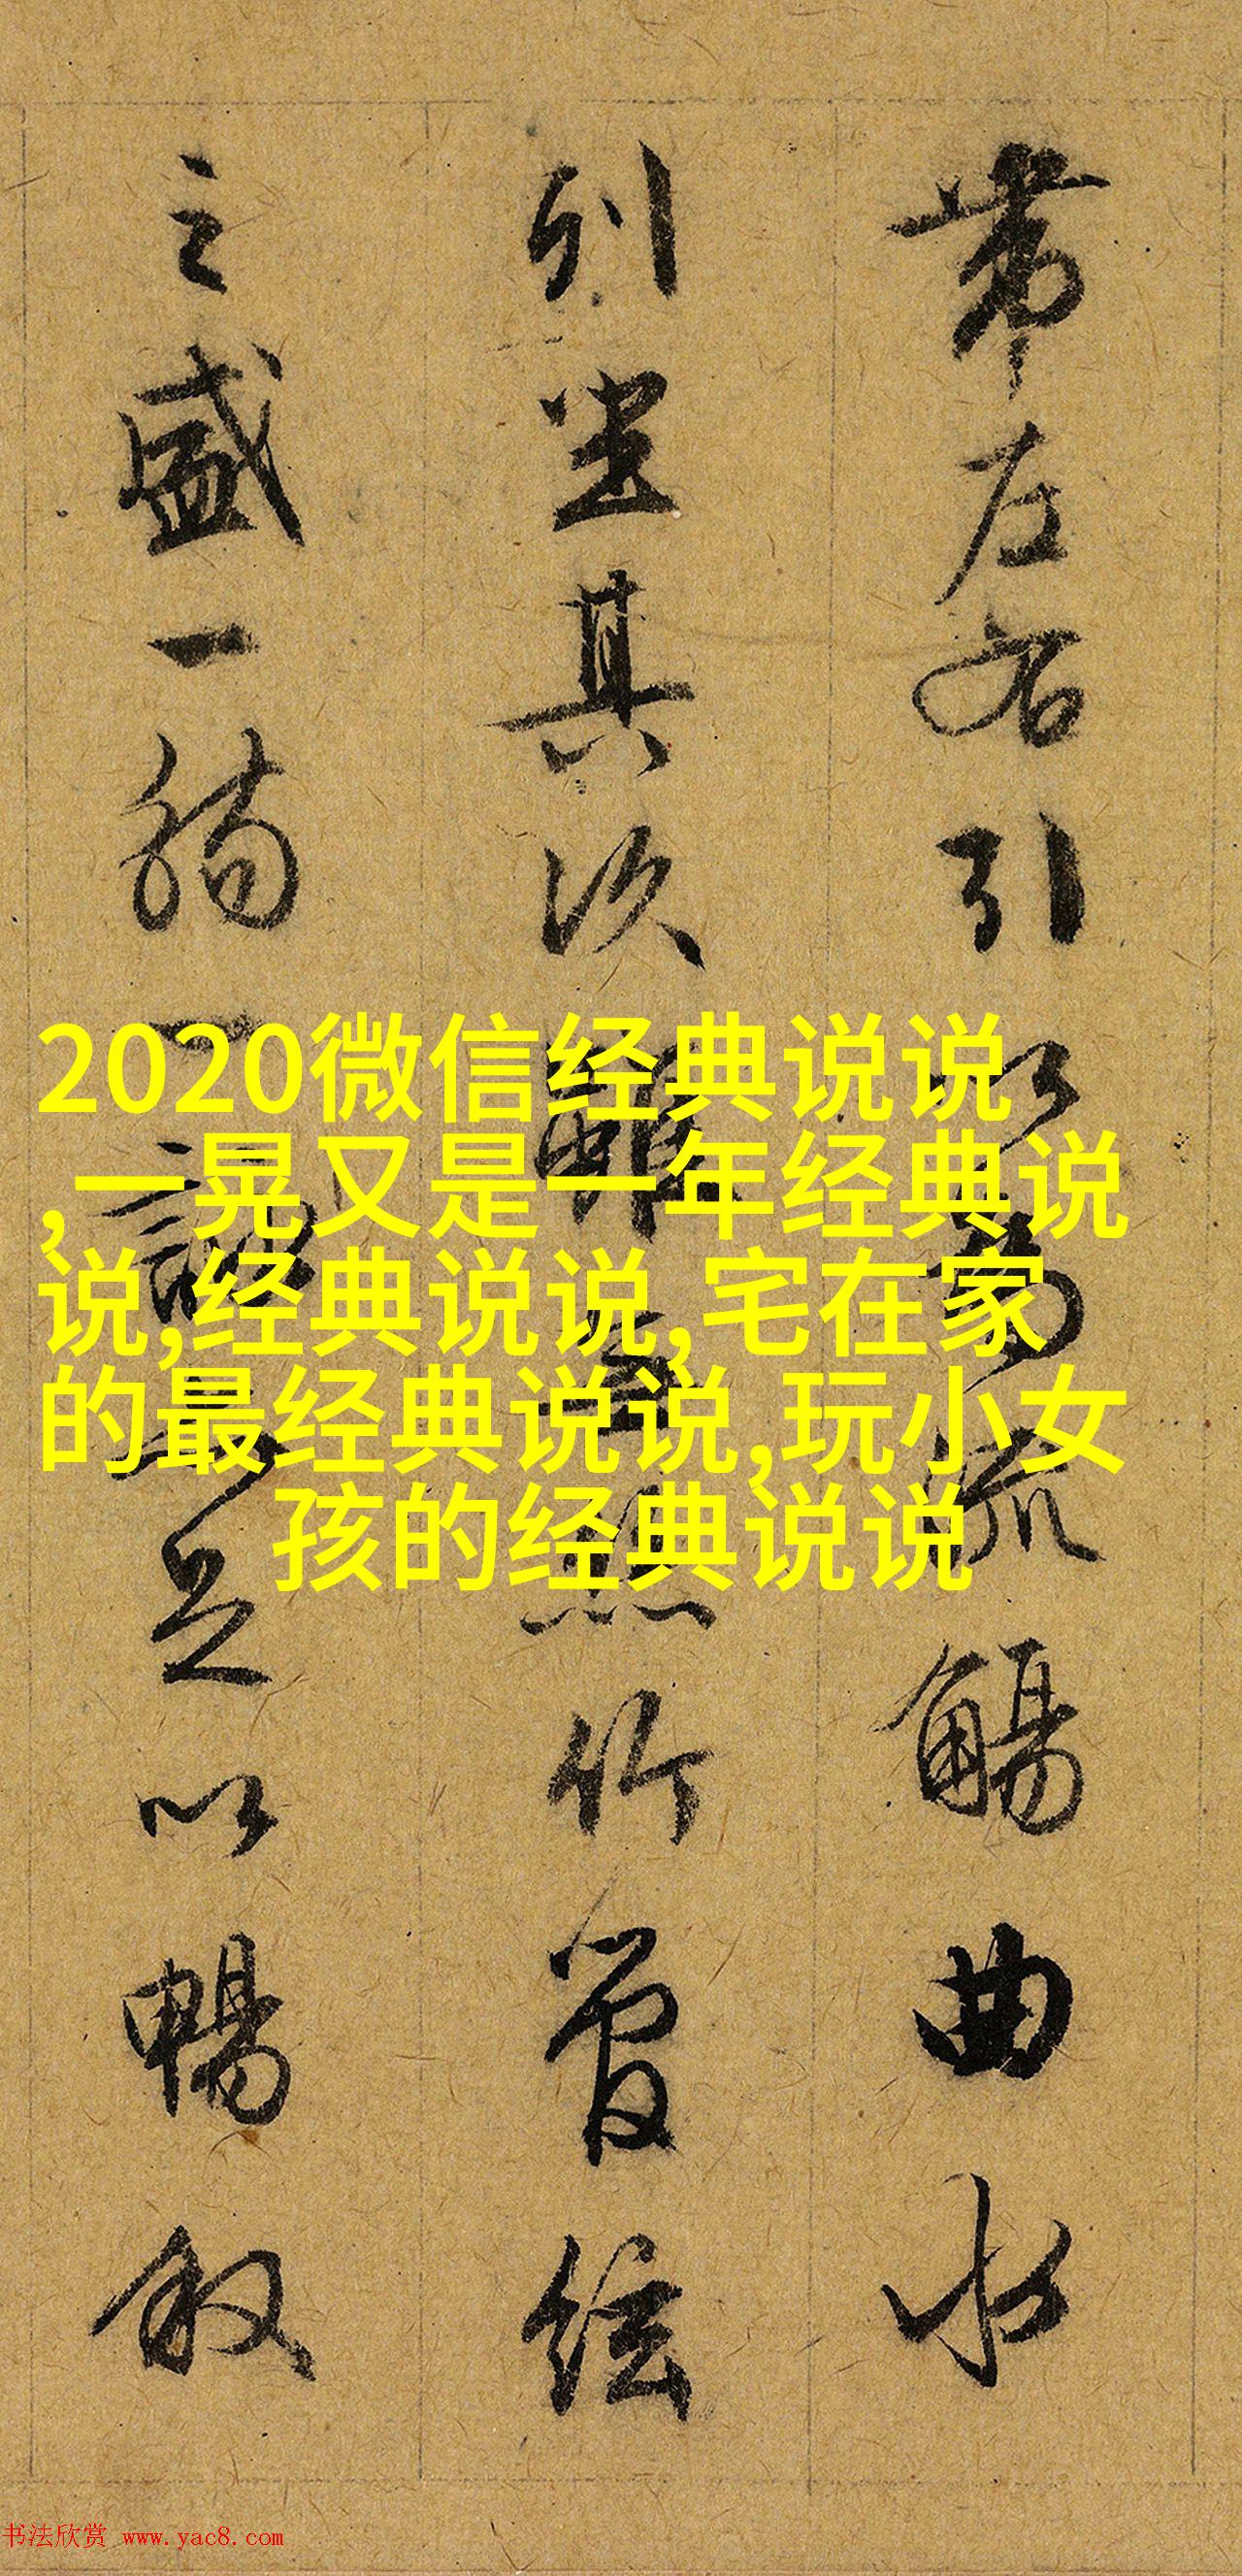 帶左右引以為流觴曲水
列坐其次雖無絲竹管絃
之盛一觴一詠亦足以暢敘
2020微信经典说说
,一晃又是一年经典说
说,经典说说,宅在家
的最经典说说,玩小女
孩的经典说说
书法欣赏 www.yac8.com